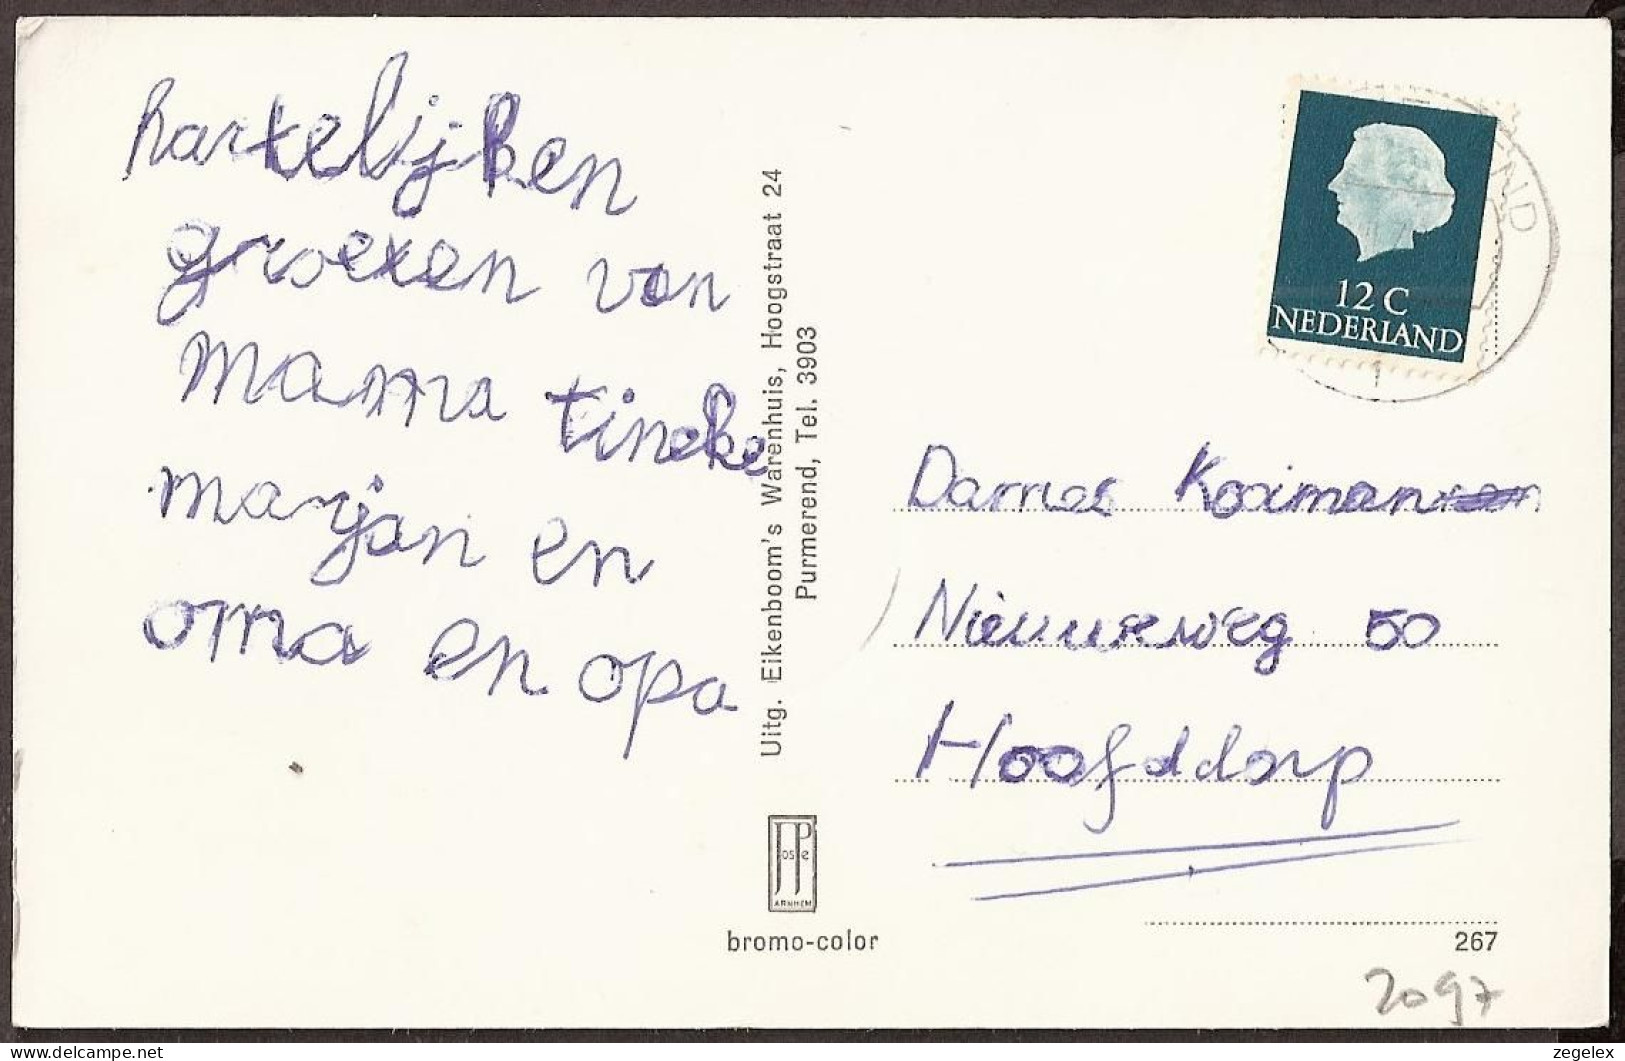 hartelijken
groeten van
mama tineke
marjan en
oma en opa
Uitg. Eikenboom's Warenhuis, Hoogstraat 24
Purmerend, Tel. 3903
JosPé
ARNHEM
bromo-color
12 C
NEDERLAND
END
1
Dames Kooiman
Nieuweweg 50
Hoofddorp
267
2097
zegelex
delcampe.net